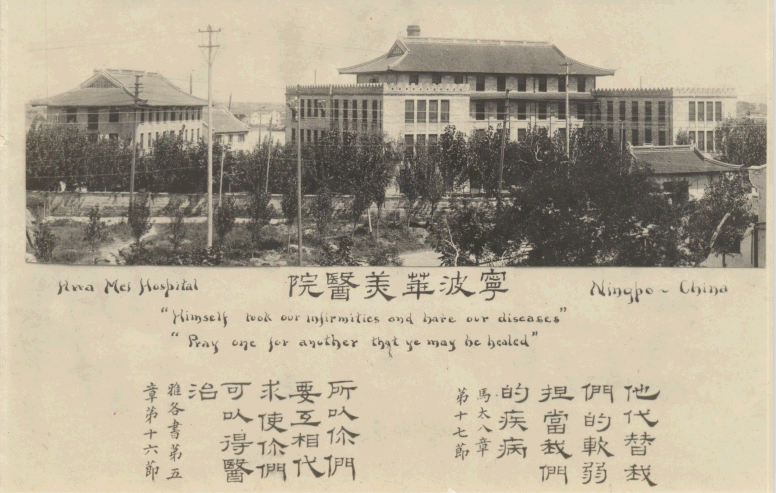 Hwa Mei Hospital
院醫美華波寧
Ningpo - China
"Himself took our infirmities and bare our diseases"
"Pray one for another that ye may be healed"
他代替我
們的軟弱
担當我們
的疾病
馬太八章
第十七節
所以你們
要互相代
求使你們
可以得醫
治
雅各書第五
章第十六節